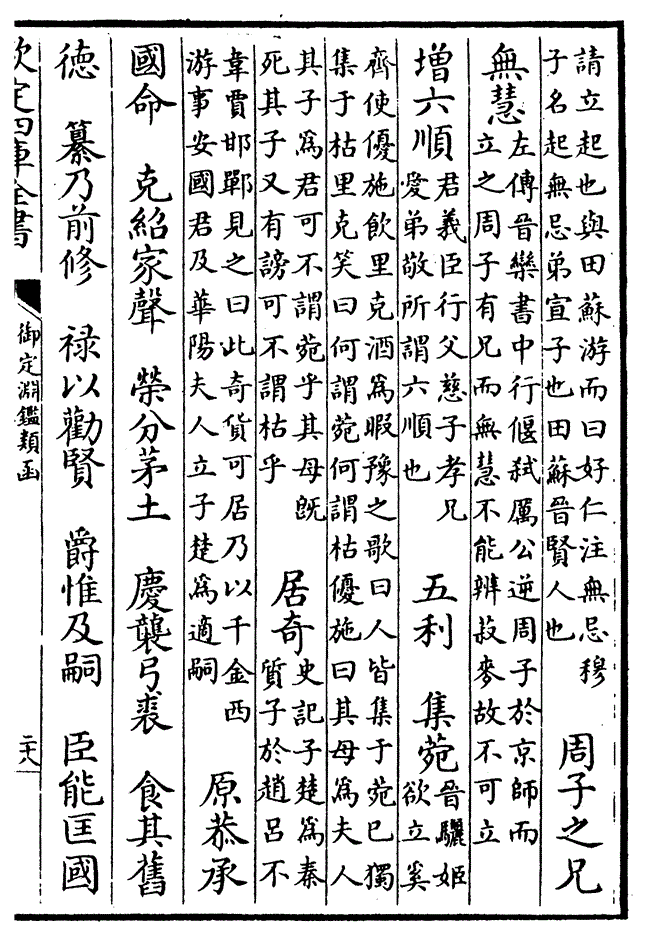 請立起也與田蘇游而曰好仁注無忌穆
子名起無忌弟宣子也田蘇晉賢人也
周子之兄
無慧
左傳晉欒書中行偃弑厲公逆周子於京師而
立之周子有兄而無慧不能辨菽麥故不可立
增六順
君義臣行父慈子孝兄
愛弟敬所謂六順也
五利
集菀
晉驪姬
欲立奚
齊使優施飲里克酒為暇豫之歌曰人皆集于菀已獨
集于枯里克笑曰何謂菀何謂枯優施曰其母為夫人
其子為君可不謂菀乎其母旣
死其子又有謗可不謂枯乎
居奇
史記子楚為秦
質子於趙吕不
韋賈邯鄲見之曰此奇貨可居乃以千金西
游事安國君及華陽夫人立子楚為適嗣
原恭承
國命
克紹家聲
榮分茅土
慶襲弓裘
食其舊
徳
纂乃前修
祿以勸賢
爵惟及嗣
臣能匡國
欽定四庫全書
御定淵鑑類函
二十八